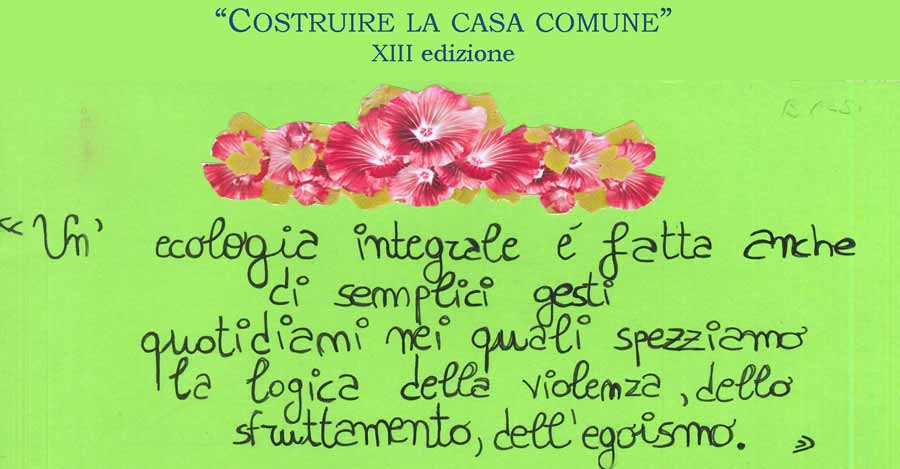 “COSTRUIRE LA CASA COMUNE”
XIII edizione
“Un’ ecologia integrale é fatta anche
di semplici gesti
quotidiami nei quali spezziamo
la logica della violenza, dello
sfruttamento, dell'egoismo. »